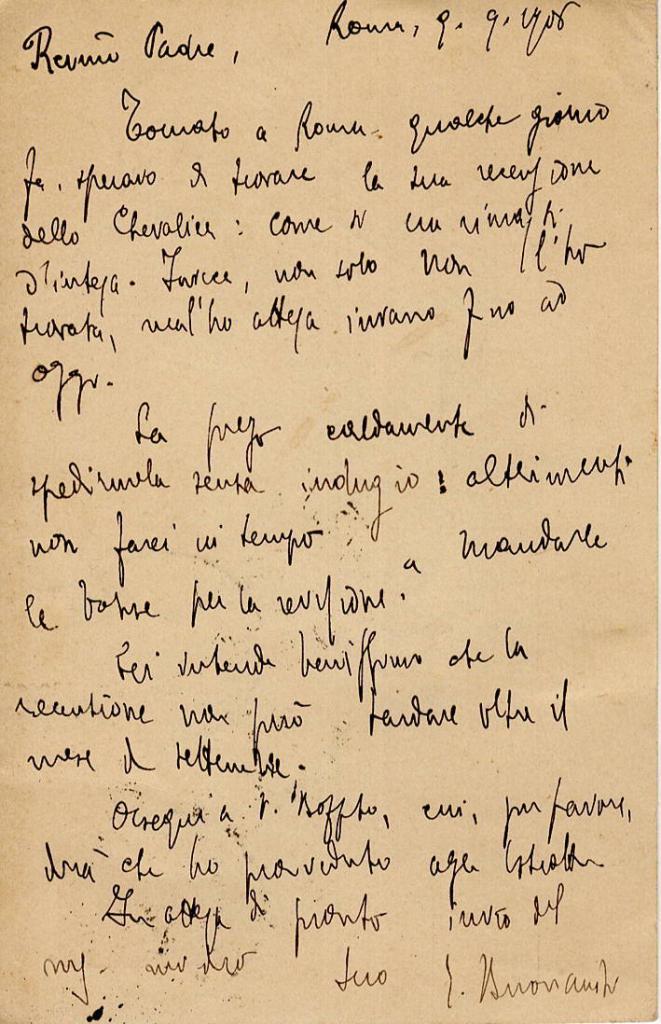 Rev.mo Padre, Roma, 9. 9. 1906
Tornato a Roma qualche giorno
fa, speravo di trovare la sua recensione
dello Chevalier: come si era rimasti
d'intesa. Invece, non solo non l'ho
trovata, ma l'ho attesa invano fino ad
oggi.
La prego caldamente di
spedirmela senza indugio: altrimenti
non farei in tempo a mandarle
le bozze per la revisione.
Lei intende benissimo che la
recensione non può tardare oltre il
mese di settembre.
Ossequi a P. Boffito, cui, per favore,
dirà che ho provveduto agli estratti.
In attesa di pronto invio del
suo E. Buonaiuti